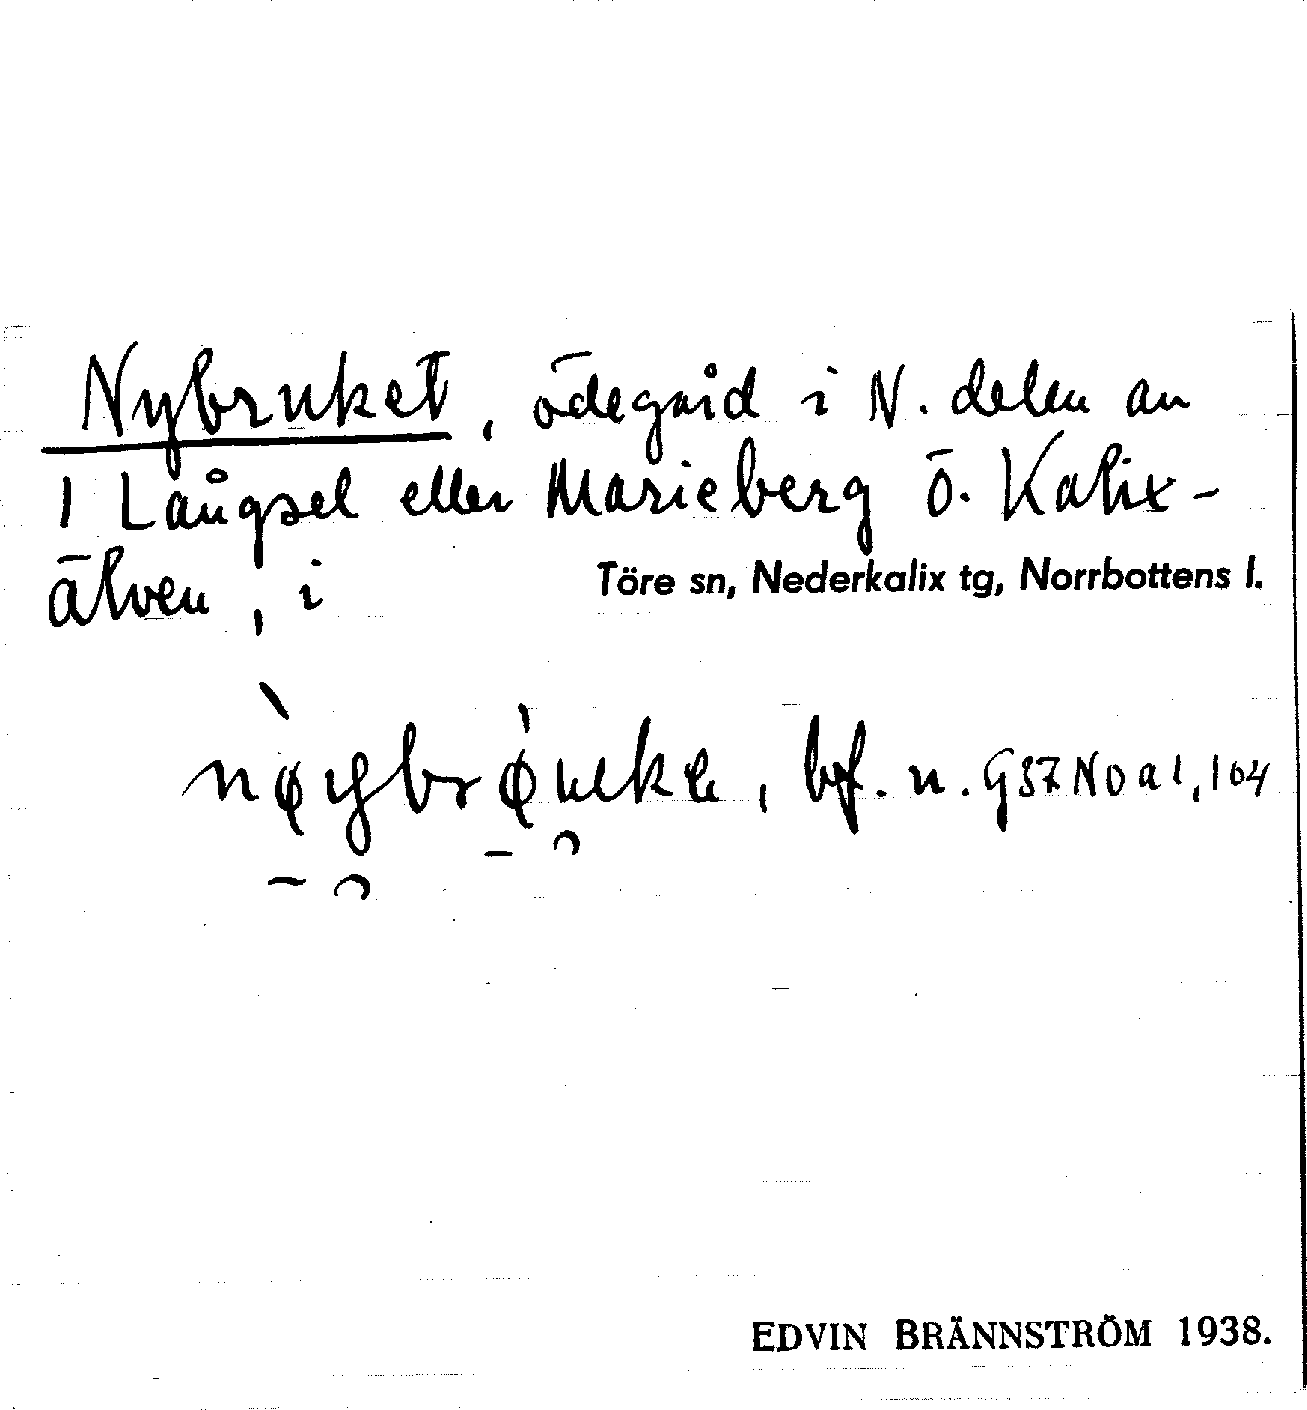 Nybruket, ödegård i N. delen av
1 Långsel eller Marieberg Ö. Kalix-
älven, i Töre sn, Nederkalix tg, Norrbottens l.
nø̀ybrø̀uke, bf. n. G37 No a 1, 104
EDVIN BRÄNNSTRÖM 1938.